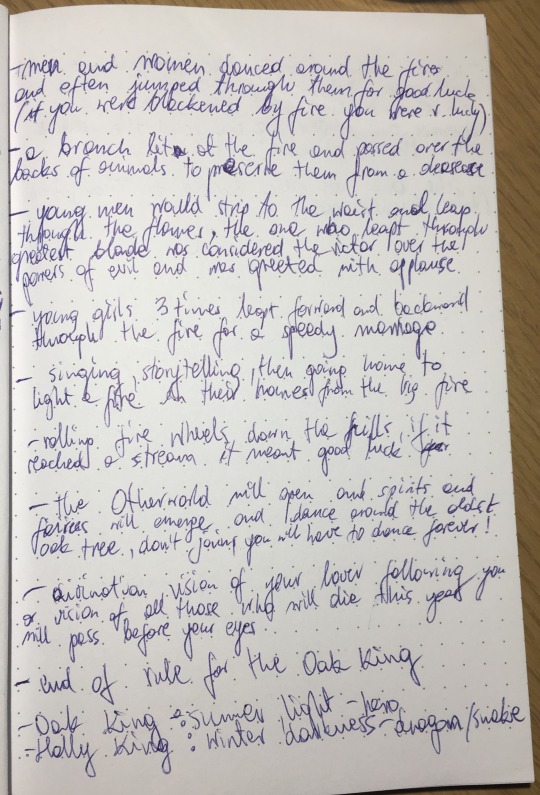 - men and women danced around the fires
and often jumped through them for good luck
(if you were blackened by fire you were v. lucky)
- a branch lit at the fire and passed over the
backs of animals to preserve them from a desease
- young men would strip to the waist and leap
through the flames, the one who leapt through
greatest blaze was considered the victor over the
powers of evil and was greeted with applause
- young girls 3 times leapt forward and backward
through the fire for a speedy marriage
- singing, storytelling, then going home to
light a fire in their homes from the big fire
- rolling fire wheels down the hills, if it
reached a stream it meant good luck
- the Otherworld will open and spirits and
fairies will emerge and dance around the oldest
oak tree, don't join, you will have to dance forever!
- vision of your lover following you
or vision of all those who will die this year
will pass before your eyes
- end of rule for the Oak King
- Oak King : summer light - hero
- Holly King : winter darkness - dragon/snake